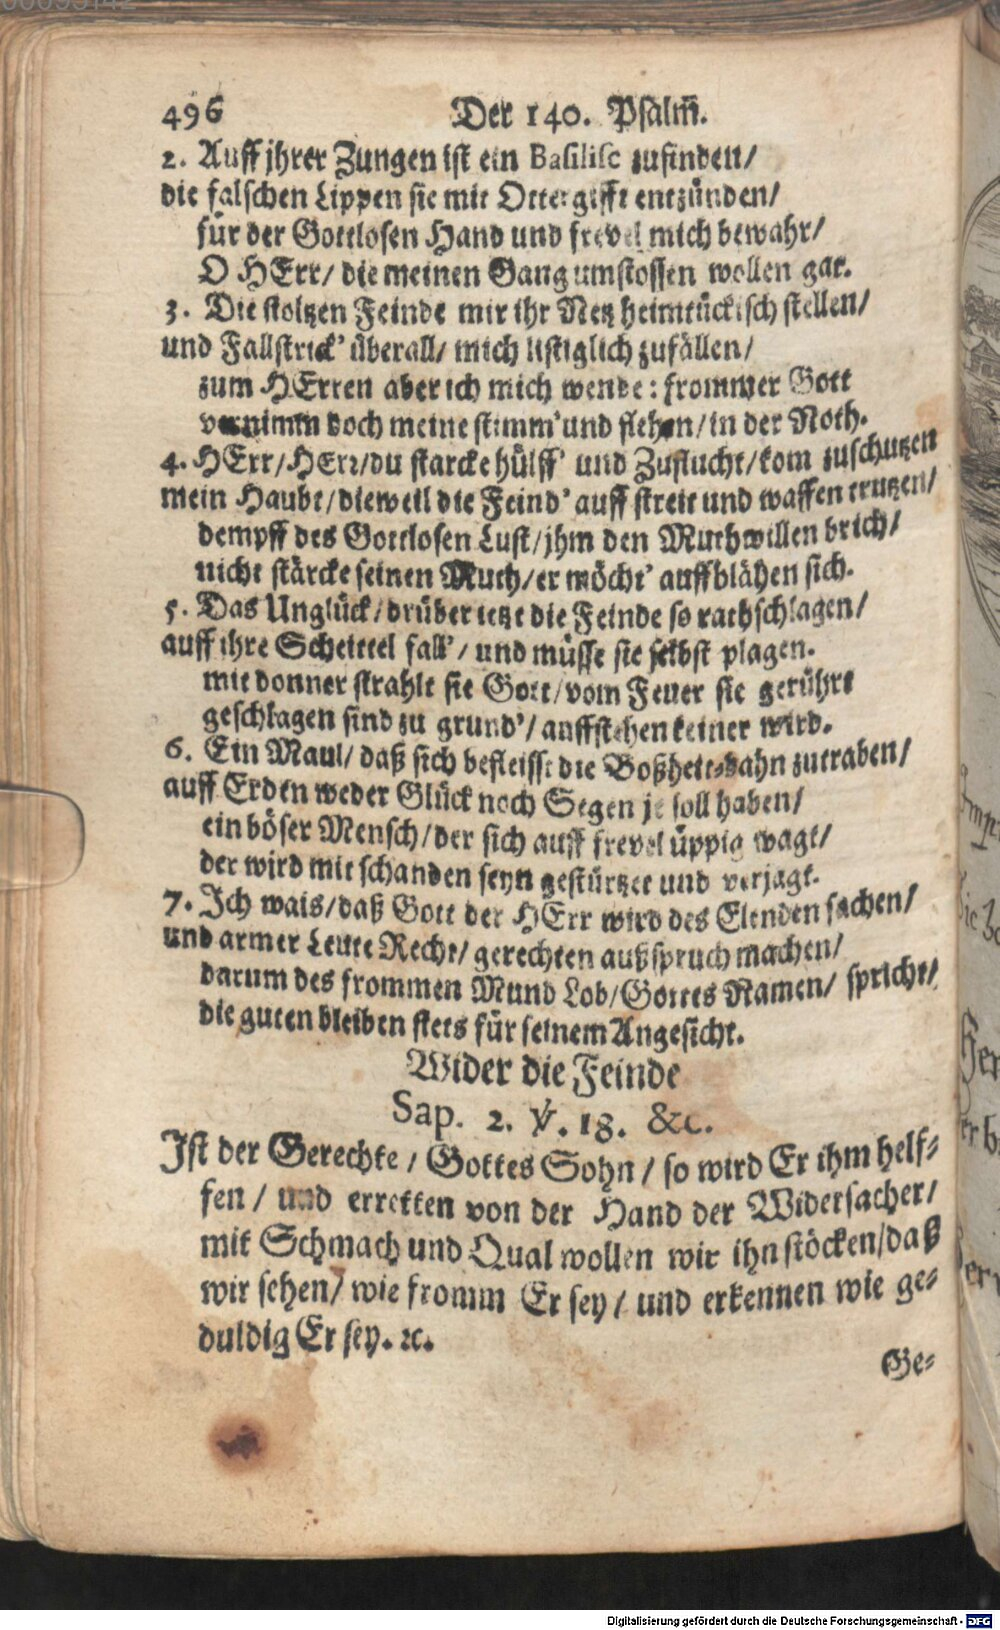 496 Der 140. Psalm̃.
2. Auff jhrer Zungen ist ein Basilisc zufinden/
die falschen Lippen sie mit Ottergifft entzünden/
für der Gottlosen Hand und frevel mich bewahr/
O HErr/ die meinen Gang umstossen wollen gar.
3. Die stoltzen Feinde mir ihr Netz heimtückisch stellen/
und Fallstrick' überall/ mich listiglich zufällen/
zum HErren aber ich mich wende: frommer Gott
vernimm doch meine stimm' und flehen/ in der Noth.
4. HErr/ HErr/ du starcke hülff' und Zuflucht/ kom zuschutzen
mein Haubt/ dieweil die Feind' auff streit und waffen trutzen/
dempff des Gottlosen Lust/ jhm den Muthwillen brich/
nicht stärcke seinen Muth/ er möcht' auffblähen sich.
5. Das Unglück/ drüber ietzt die Feinde so rathschlagen/
auff ihre Scheittel fall'/ und müsse sie selbst plagen.
mit donner strahlt sie Gott/ vom Feuer sie gerührt
geschlagen sind zu grund'/ auffstehen keiner wird.
6. Ein Maul/ daß sich befleisst die Boßheit-bahn zutraben/
auff Erden weder Glück noch Segen je soll haben/
ein böser Mensch/ der sich auff frevel üppig wagt/
der wird mit schanden seyn gestürtzet und verjagt.
7. Ich wais/ daß Gott der HErr wird des Elenden sachen/
und armer Leute Recht/ gerechten außspruch machen/
darum des frommen Mund Lob/ Gottes Namen/ spricht/
die guten bleiben stets für seinem Angesicht.
Wider die Feinde
Sap. 2. ℣. 18. &c.
Ist der Gerechte/ Gottes Sohn/ so wird Er ihm helf-
fen/ und erretten von der Hand der Widersacher/
mit Schmach und Qual wollen wir ihn stöcken/ daß
wir sehen/ wie fromm Er sey/ und erkennen wie ge-
duldig Er sey. ꝛc.
Ge-
Digitalisierung gefördert durch die Deutsche Forschungsgemeinschaft - DFG